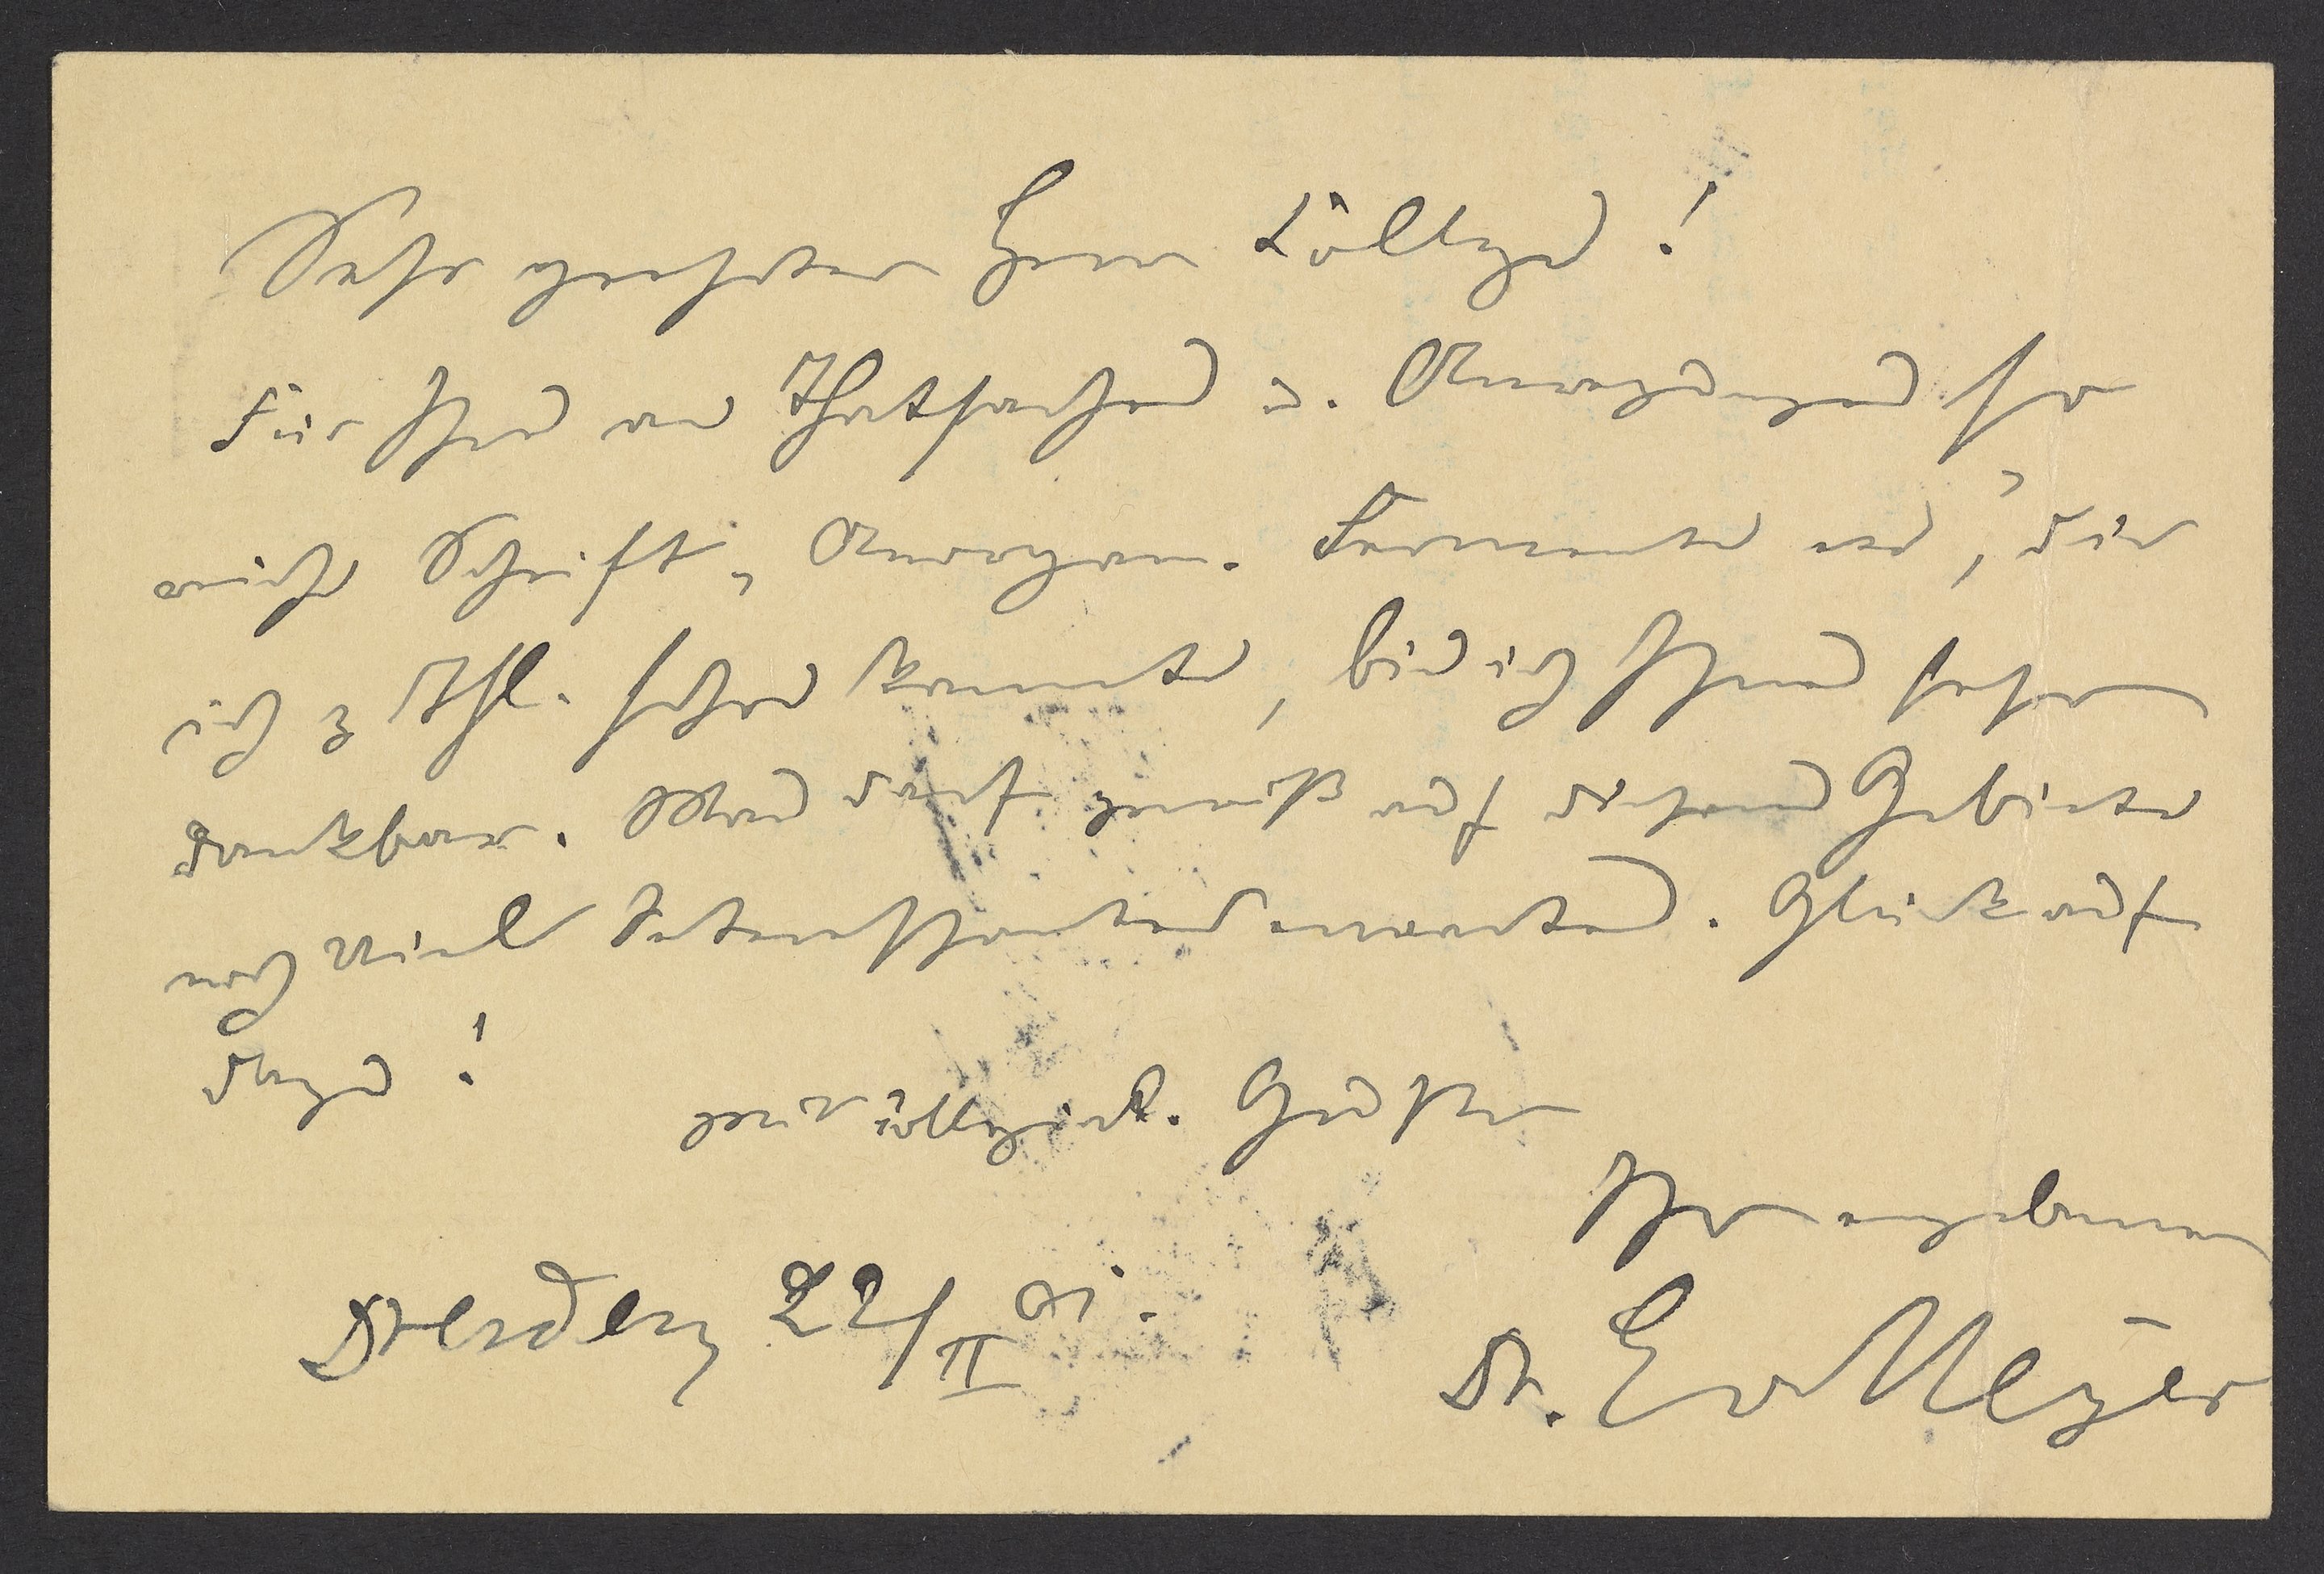 Sehr geehrter Herr College!
Für Ihre an Thatsachen u. Anregungen so
reiche Schrift „Anorgan. Fermente etc", die
ich z Thl. schon kannte, bin ich Ihnen sehr
dankbar. Man darf gewiß auf diesem Gebiete
noch viel Interessantes erwarten. Glückauf
dazu!
Grüßen
Ihr ergebener
Dresden 22/II 01.
Dr. E v Meyer